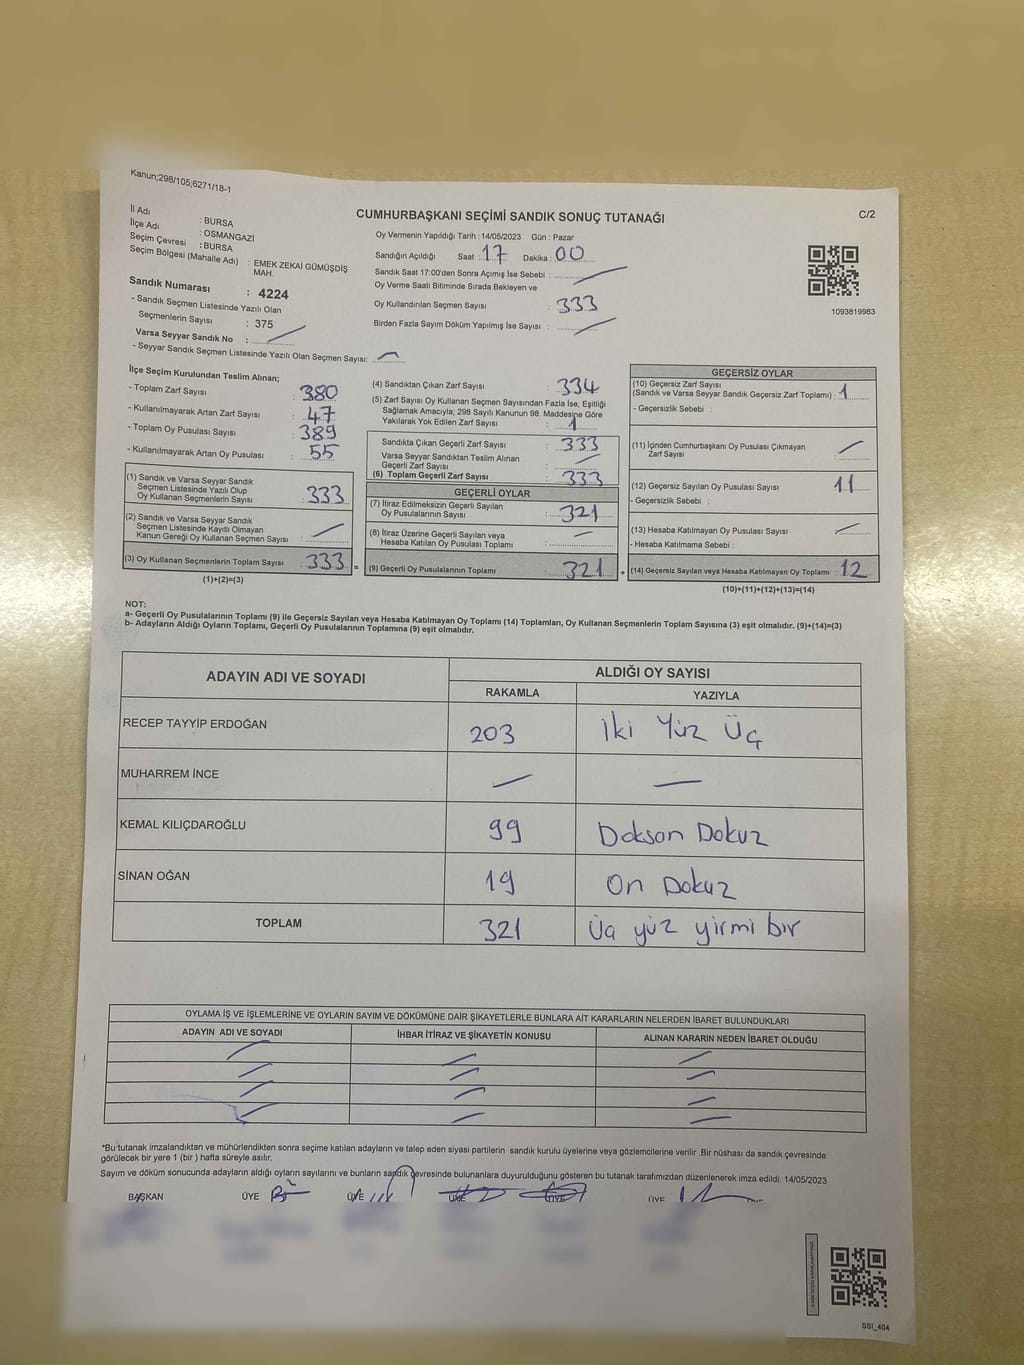 Kanun;298/105;6271/18-1
CUMHURBAŞKANI SEÇİMİ SANDIK SONUÇ TUTANAĞI
C/2
İl Adı : BURSA
İlçe Adı : OSMANGAZİ
Seçim Çevresi : BURSA
Seçim Bölgesi (Mahalle Adı) : EMEK ZEKAİ GÜMÜŞDİŞ MAH.
Sandık Numarası : 4224
- Sandık Seçmen Listesinde Yazılı Olan
Seçmenlerin Sayısı : 375
Varsa Seyyar Sandık No :
- Seyyar Sandık Seçmen Listesinde Yazılı Olan Seçmen Sayısı:
Oy Vermenin Yapıldığı Tarih : 14/05/2023 Gün : Pazar
Sandığın Açıldığı Saat : 17 Dakika : 00
Sandık Saat 17:00'den Sonra Açımış İse Sebebi :
Oy Verme Saati Bitiminde Sırada Bekleyen ve
Oy Kullandırılan Seçmen Sayısı : 333
Birden Fazla Sayım Döküm Yapılmış İse Sayısı :
1093819983
İlçe Seçim Kurulundan Teslim Alınan;
- Toplam Zarf Sayısı : 380
- Kullanılmayarak Artan Zarf Sayısı : 47
- Toplam Oy Pusulası Sayısı : 389
- Kullanılmayarak Artan Oy Pusulası : 55
(1) Sandık ve Varsa Seyyar Sandık
Seçmen Listesinde Yazılı Olup
Oy Kullanan Seçmenlerin Sayısı : 333
(2) Sandık ve Varsa Seyyar Sandık
Seçmen Listesinde Kayıtlı Olmayan
Kanun Gereği Oy Kullanan Seçmen Sayısı :
(3) Oy Kullanan Seçmenlerin Toplam Sayısı : 333 =
(1)+(2)=(3)
(4) Sandıktan Çıkan Zarf Sayısı : 334
(5) Zarf Sayısı Oy Kullanan Seçmen Sayısından Fazla İse, Eşitliği
Sağlamak Amacıyla; 298 Sayılı Kanunun 98. Maddesine Göre
Yakılarak Yok Edilen Zarf Sayısı : 1
Sandıkta Çıkan Geçerli Zarf Sayısı : 333
Varsa Seyyar Sandıktan Teslim Alınan
Geçerli Zarf Sayısı :
(6) Toplam Geçerli Zarf Sayısı : 333
GEÇERLİ OYLAR
(7) İtiraz Edilmeksizin Geçerli Sayılan
Oy Pusulalarının Sayısı : 321
(8) İtiraz Üzerine Geçerli Sayılan veya
Hesaba Katılan Oy Pusulası Toplamı :
(9) Geçerli Oy Pusulalarının Toplamı : 321 +
GEÇERSİZ OYLAR
(10) Geçersiz Zarf Sayısı
(Sandık ve Varsa Seyyar Sandık Geçersiz Zarf Toplamı) : 1
- Geçersizlik Sebebi :
(11) İçinden Cumhurbaşkanı Oy Pusulası Çıkmayan
Zarf Sayısı :
(12) Geçersiz Sayılan Oy Pusulası Sayısı : 11
- Geçersizlik Sebebi :
(13) Hesaba Katılmayan Oy Pusulası Sayısı :
- Hesaba Katılmama Sebebi :
(14) Geçersiz Sayılan veya Hesaba Katılmayan Oy Toplamı : 12
(10)+(11)+(12)+(13)=(14)
NOT:
a- Geçerli Oy Pusulalarının Toplamı (9) ile Geçersiz Sayılan veya Hesaba Katılmayan Oy Toplamı (14) Toplamları, Oy Kullanan Seçmenlerin Toplam Sayısına (3) eşit olmalıdır. (9)+(14)=(3)
b- Adayların Aldığı Oyların Toplamı, Geçerli Oy Pusulalarının Toplamına (9) eşit olmalıdır.
ADAYIN ADI VE SOYADI
ALDIĞI OY SAYISI
RAKAMLA YAZIYLA
RECEP TAYYİP ERDOĞAN 203 İki Yüz Üç
MUHARREM İNCE
KEMAL KILIÇDAROĞLU 99 Doksan Dokuz
SİNAN OĞAN 19 On Dokuz
TOPLAM 321 Üç yüz yirmi bir
OYLAMA İŞ VE İŞLEMLERİNE VE OYLARIN SAYIM VE DÖKÜMÜNE DAİR ŞİKAYETLERLE BUNLARA AİT KARARLARIN NELERDEN İBARET BULUNDUKLARI
ADAYIN ADI VE SOYADI İHBAR İTİRAZ VE ŞİKAYETİN KONUSU ALINAN KARARIN NEDEN İBARET OLDUĞU
*Bu tutanak imzalandıktan ve mühürlendikten sonra seçime katılan adayların ve talep eden siyasi partilerin sandık kurulu üyelerine veya gözlemcilerine verilir .Bir nüshası da sandık çevresinde
görülecek bir yere 1 (bir ) hafta süreyle asılır.
Sayım ve döküm sonucunda adayların aldığı oyların sayılarını ve bunların sandık çevresinde bulunanlara duyurulduğunu gösteren bu tutanak tarafımızdan düzenlenerek imza edildi. 14/05/2023
BAŞKAN ÜYE ÜYE ÜYE ÜYE ÜYE
SSI_404